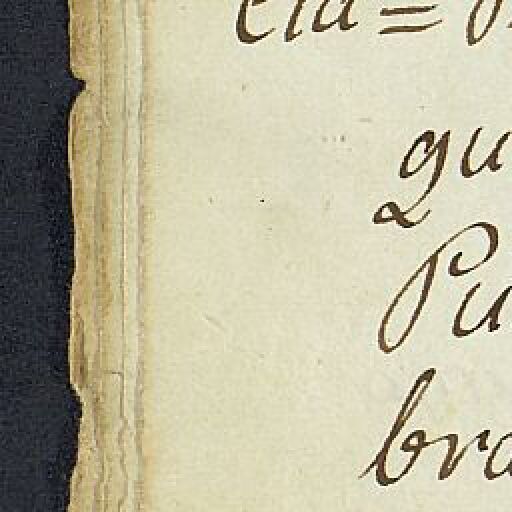 cia =
qu
Pu
bra